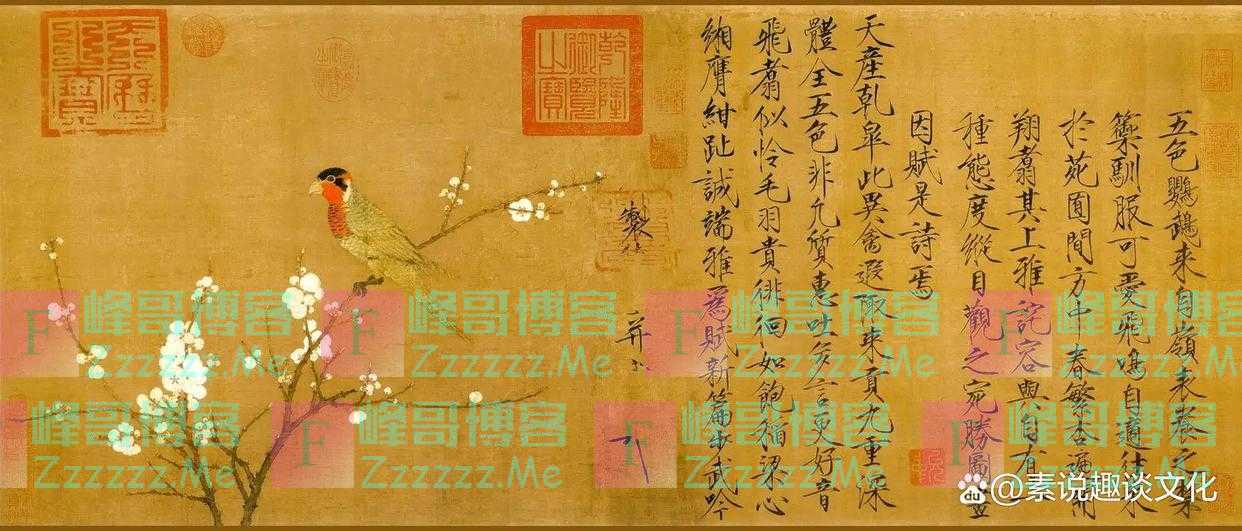 五色鸚鵡來自嶺表養之禁
籞馴服可愛飛鳴自適往來
於苑囿間方中春繁杏遍開
翔翥其上雅詫容與自有一
種態度縱目觀之宛勝圖畫
因賦是詩焉
天產乾皋此異禽遐陬來貢九重深
體全五色非凡質惠吐多言更好音
飛翥似怜毛羽貴徘徊如飽稻粱心
緗膺紺趾誠端雅為賦新篇步武吟
製
并
乾隆御覽之寶
F 峰哥博客
Zzzzzz.Me
F 峰哥博客
Zzzzzz.Me
F 峰哥博客
Zzzzzz.Me
F 峰哥博客
Zzzzzz.Me
峰哥博客
Zzzzzz.Me
F 峰哥博客
Zzzzzz.Me
F 峰哥博客
Zzzzzz.Me
F 峰哥博客
Zzzzzz.Me
Bai du @素说趣谈文化